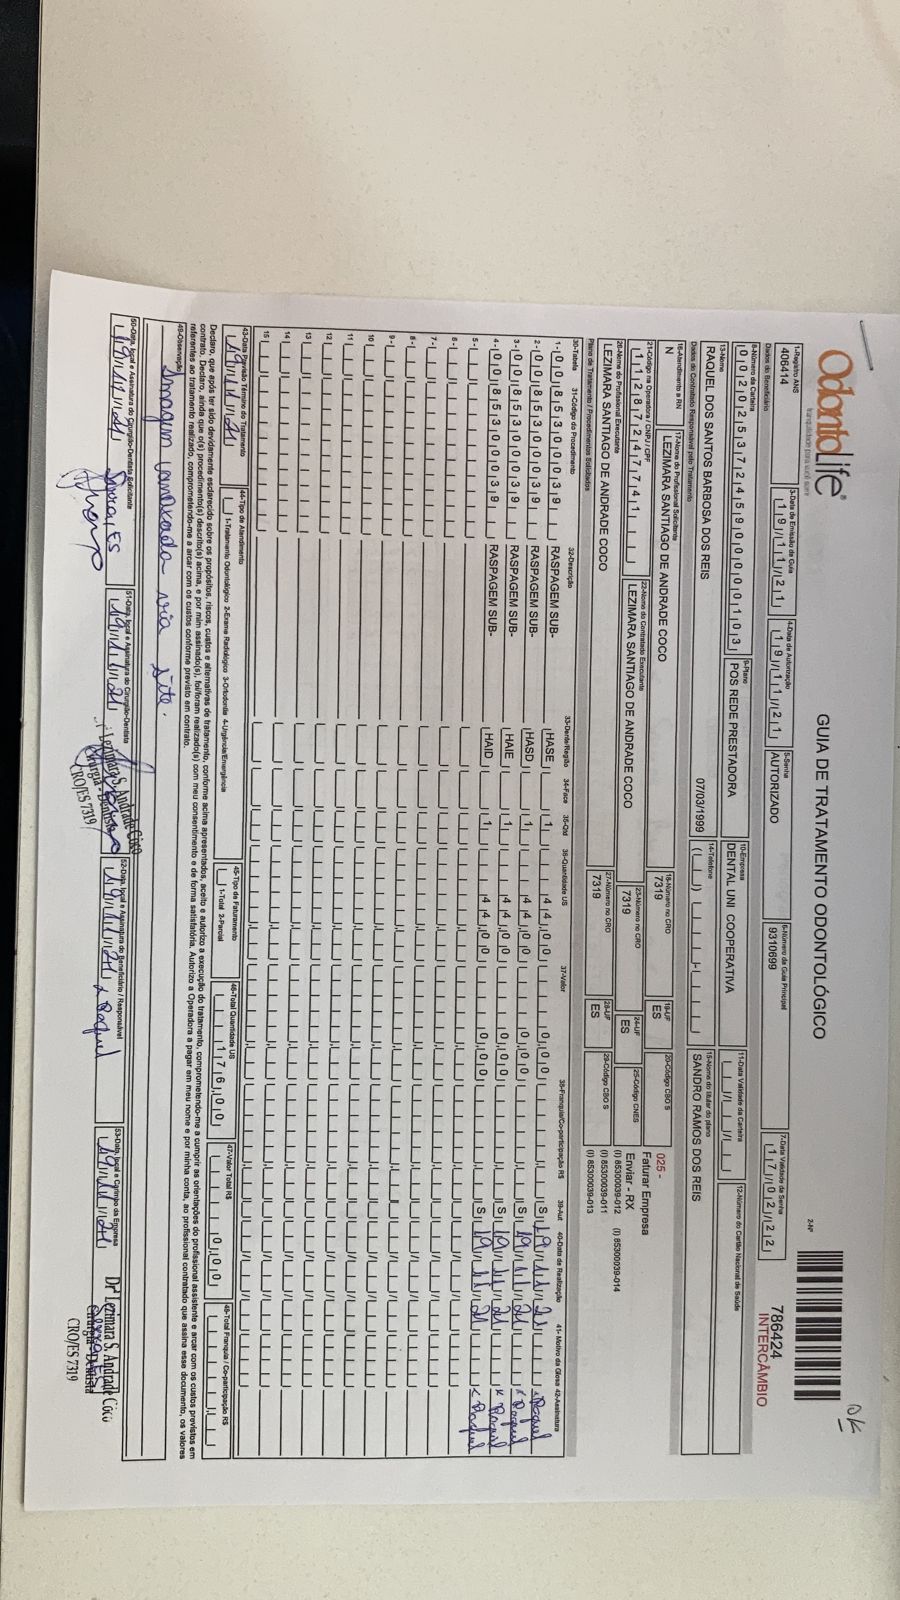 OdontoLife®
tranquilidade para você sorrir
GUIA DE TRATAMENTO ODONTOLÓGICO
2-Nº
786424
INTERCÂMBIO
OK
1-Registro ANS
406414
3-Data de Emissão da Guia
19/11/21
4-Data de Autorização
19/11/21
5-Senha
AUTORIZADO
6-Número da Guia Principal
9310699
7-Data Validade da Senha
17/02/22
Dados do Beneficiário
8-Número da Carteira
00202537245900000103
9-Plano
POS REDE PRESTADORA
10-Empresa
DENTAL UNI COOPERATIVA
11-Data Validade da Carteira
12-Número do Cartão Nacional de Saúde
13-Nome
RAQUEL DOS SANTOS BARBOSA DOS REIS
07/03/1999
14-Telefone
15-Nome do titular do plano
SANDRO RAMOS DOS REIS
Dados do Contratado Responsável pelo Tratamento
16-Atendimento a RN
N
17-Nome do Profissional Solicitante
LEZIMARA SANTIAGO DE ANDRADE COCO
18-Número no CRO
7319
19-UF
ES
20-Código CBO S
025 -
Faturar Empresa
Enviar - RX
(I) 85300039-012 (I) 85300039-014
(I) 85300039-011
(I) 85300039-013
21-Código na Operadora / CNPJ / CPF
11287247741
22-Nome do Contratado Executante
LEZIMARA SANTIAGO DE ANDRADE COCO
23-Número no CRO
7319
24-UF
ES
25-Código CNES
26-Nome do Profissional Executante
LEZIMARA SANTIAGO DE ANDRADE COCO
27-Número no CRO
7319
28-UF
ES
29-Código CBO S
Plano de Tratamento / Procedimentos Solicitados
30-Tabela 31-Código do Procedimento 32-Descrição 33-Dente/Região 34-Face 35-Qtd 36-Quantidade US 37-Valor 38-Franquia/Co-participação R$ 39-Aut 40-Data de Realização 41- Motivo da Glosa 42-Assinatura
1- 00 85300039 RASPAGEM SUB- HASE 1 44,00 0,00 S 19/11/21 x Raquel
2- 00 85300039 RASPAGEM SUB- HASD 1 44,00 0,00 S 19/11/21 x Raquel
3- 00 85300039 RASPAGEM SUB- HAIE 1 44,00 0,00 S 19/11/21 x Raquel
4- 00 85300039 RASPAGEM SUB- HAID 1 44,00 0,00 S 19/11/21 x Raquel
5-
6-
7-
8-
9-
10
11
12
13
14
15
43-Data Previsão Término do Tratamento
19/11/21
44-Tipo de Atendimento
1-Tratamento Odontológico 2-Exame Radiológico 3-Ortodontia 4-Urgência/Emergência
45-Tipo de Faturamento
1-Total 2-Parcial
46-Total Quantidade US
176,00
47-Valor Total R$
0,00
48-Total Franquia / Co-participação R$
Declaro, que após ter sido devidamente esclarecido sobre os propósitos, riscos, custos e alternativas de tratamento, conforme acima apresentados, aceito e autorizo a execução do tratamento, comprometendo-me a cumprir as orientações do profissional assistente e arcar com os custos previstos em
contrato. Declaro, ainda que o(s) procedimento(s) descrito(s) acima, e por mim assinado(s), foi/foram realizado(s) com meu consentimento e de forma satisfatória. Autorizo a Operadora a pagar em meu nome e por minha conta, ao profissional contratado que assina esse documento, os valores
referentes ao tratamento realizado, comprometendo-me a arcar com os custos conforme previsto em contrato.
49-Observação
Imagem anexada via site.
50-Data, local e Assinatura do Cirurgião-Dentista Solicitante
19/11/21 Serra, ES
51-Data, local e Assinatura do Cirurgião-Dentista
19/11/21
Lezimara S. Andrade Côco
Cirurgiã - Dentista
CRO/ES 7319
52-Data, local e Assinatura do Beneficiário / Responsável
19/11/21 x Raquel
53-Data, local e Carimbo da Empresa
19/11/21
Drª Lezimara S. Andrade Côco
Cirurgiã - Dentista
CRO/ES 7319